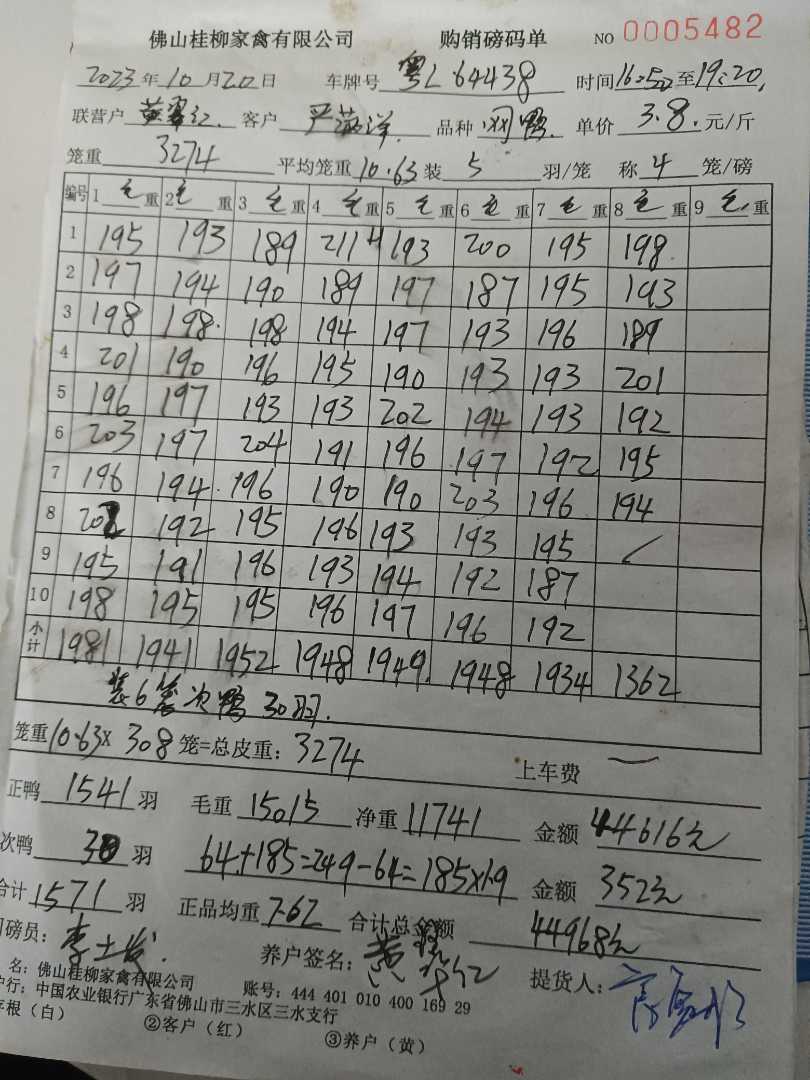 佛山桂柳家禽有限公司 购销磅码单 NO 0005482
2023年10月20日 车牌号 粤L64438 时间16:50至19:20
联营户 黄翠红 客户 严 洋 品种 肉鸭 单价 3.8 元/斤
笼重 3274 平均笼重10.63 装 5 羽/笼 称 4 笼/磅
编号 1 毛重 2 毛重 3 毛重 4 毛重 5 毛重 6 毛重 7 毛重 8 毛重 9 毛重
1 195 193 189 211 193 200 195 198
2 197 194 190 189 197 187 195 193
3 198 198 198 194 197 193 196 189
4 201 190 196 195 190 193 193 201
5 196 197 193 193 202 194 193 192
6 203 197 204 191 196 197 192 195
7 196 194 196 190 190 203 196 194
8 202 192 195 196 193 193 195
9 195 191 196 193 194 192 187
10 198 195 195 196 197 196 192
小计 1981 1941 1952 1948 1949 1948 1934 1362
装6笼次鸭 30羽.
笼重10.63×308笼=总皮重: 3274 上车费 —
正鸭 1541 羽 毛重 15015 净重 11741 金额 44616元
次鸭 30 羽 64+185=249-64=185×1.9 金额 352元
合计 1571 羽 正品均重 7.62 合计总金额 44968元
司磅员: 李土 养户签名: 黄翠红 提货人:
名: 佛山桂柳家禽有限公司 账号: 444 401 010 400 169 29
户行: 中国农业银行广东省佛山市三水区三水支行
存根(白) ②客户(红) ③养户(黄)